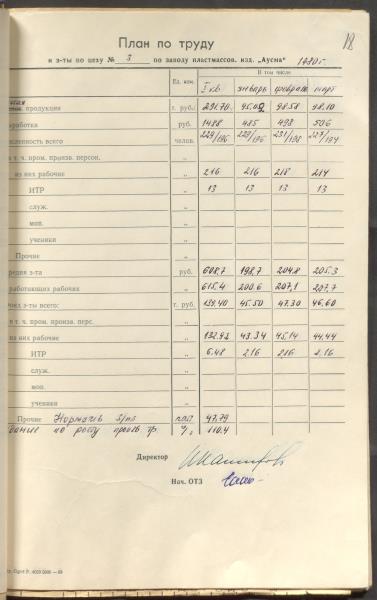 18
План по труду
и з-ты по цеху № 3 по заводу пластмассов. изд. „Аусма" 1980 г.
Ед. изм.
В том числе
I кв. январь февраль март
продукция г. руб. 291.70 95.02 98.58 98.10
работка руб. 1488 485 498 506
ленность всего челов. 229/196 229/196 231/198 227/194
в т. ч. пром. произв. персон. „
из них рабочие „ 216 216 218 214
ИТР „ 13 13 13 13
служ. „
моп. „
ученики „
Прочие „
редняя з-та руб. 608,7 198,7 204.8 205.3
работающих рабочих „ 615.4 200.6 207,1 207,7
фонд з-ты всего: г. руб. 139.40 45.50 47.30 46.60
в т. ч. пром. произв. перс. „
из них рабочие „ 132.92 43.34 45.14 44.44
ИТР „ 6.48 2.16 2.16 2.16
служ. „
моп. „
ученики „
Прочие Норматив з/пл коп 47,79
дание по росту произв. тр. % 110.4
Директор
Нач. ОТЗ